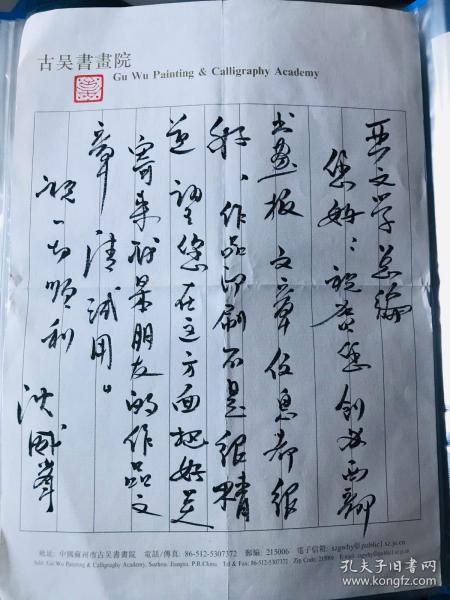 古吴書畫院
Gu Wu Painting & Calligraphy Academy
文学总编
您好：祝贺您创办西部
书画报 文章信息都很
好、作品印刷不是很精
望您在这方面把好关
寄来 朋友的作品文
章 请试用。
祝一切顺利
沈威峰
地址: 中國蘇州市古吴書畫院 電話/傳真: 86-512-5307372 郵編: 215006 電子信箱: szgwhy@public1.sz.js.cn
Add: Gu Wu Painting & Calligraphy Academy, Suzhou, Jiangsu, P.R.China. Tel & Fax: 86-512-5307372 Zip Code: 215006 E-mail: szgwhy@public1.sz.js.cn
孔夫子旧书网
www.kongfz.com